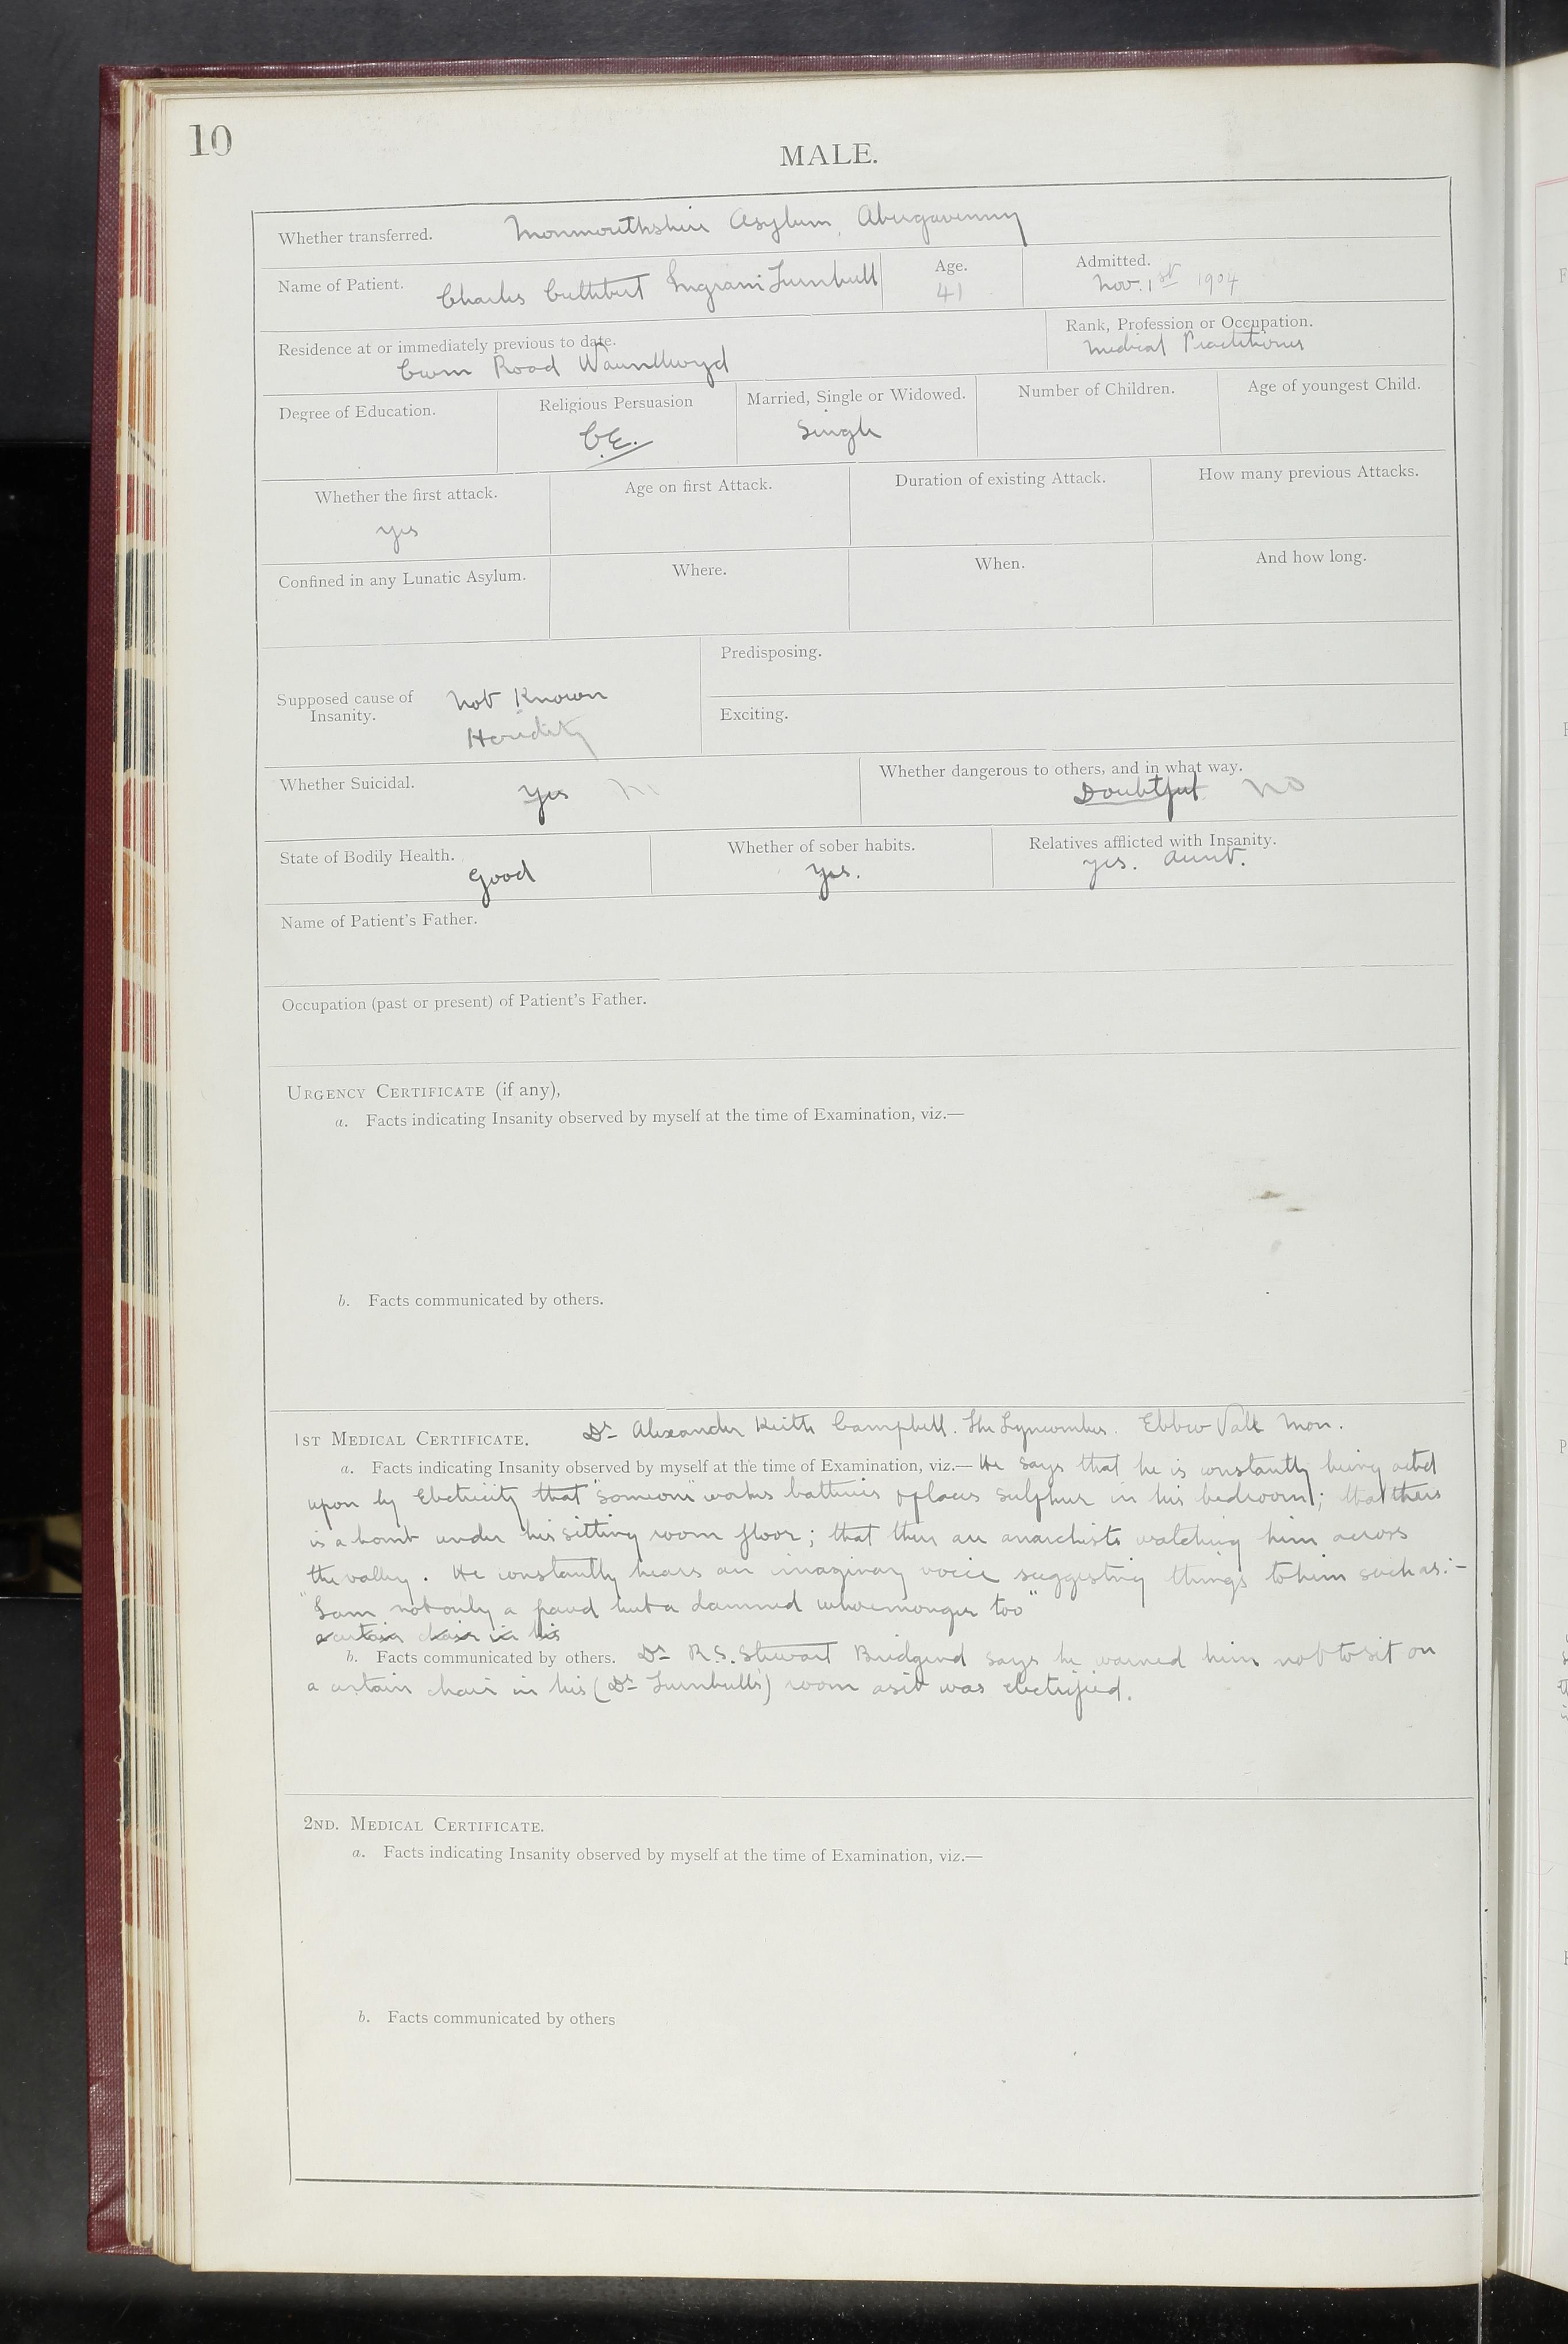 10
MALE.
Whether transferred. Monmouthshire Asylum, Abergavenny
Name of Patient. Charles Cuthbert Ingram Turnbull
Age. 41
Admitted. Nov. 1st 1904
Residence at or immediately previous to date.
Cwm Road Waunllwyd
Rank, Profession or Occupation.
Medical Practitioner
Degree of Education.
Religious Persuasion
C.E.
Married, Single or Widowed.
Single
Number of Children.
Age of youngest Child.
Whether the first attack.
yes
Age on first Attack.
Duration of existing Attack.
How many previous Attacks.
Confined in any Lunatic Asylum.
Where.
When.
And how long.
Supposed cause of
Insanity.
not Known
Heredity
Predisposing.
Exciting.
Whether Suicidal. Yes
Whether dangerous to others, and in what way.
Doubtful No
State of Bodily Health.
Good
Whether of sober habits.
Yes.
Relatives afflicted with Insanity.
yes. Aunt.
Name of Patient's Father.
Occupation (past or present) of Patient's Father.
URGENCY CERTIFICATE (if any),
a. Facts indicating Insanity observed by myself at the time of Examination, viz.—
b. Facts communicated by others.
1ST MEDICAL CERTIFICATE. Dr Alexander Keith Campbell. The Lyncombes. Ebbw Vale Mon.
a. Facts indicating Insanity observed by myself at the time of Examination, viz.— He says that he is constantly being acted
upon by Electricity that "someone" works batteries & places sulphur in his bedroom; that there
is a bomb under his sitting room floor; that there are anarchists watching him across
the valley. He constantly hears an imaginary voice suggesting things to him such as:-
"I am not only a fraud but a damned whoremonger too"
a certain chair in his
b. Facts communicated by others. Dr R.S. Stewart Bridgend says he warned him not to sit on
a certain chair in his (Dr Turnbull's) room as it was electrified.
2ND. MEDICAL CERTIFICATE.
a. Facts indicating Insanity observed by myself at the time of Examination, viz.—
b. Facts communicated by others